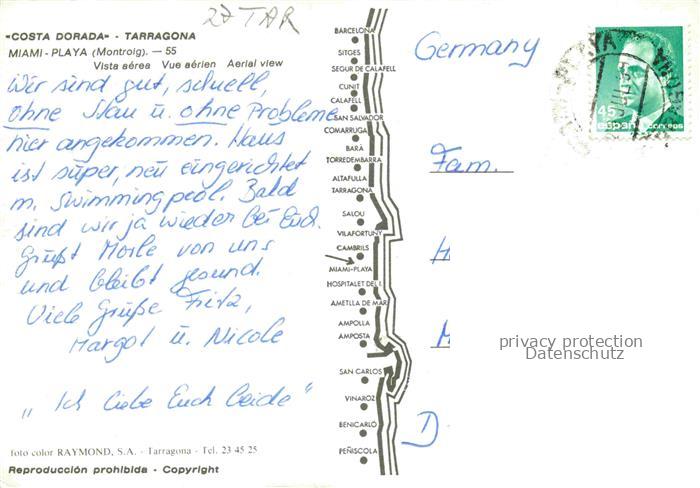 27 TAR
"COSTA DORADA" - TARRAGONA
MIAMI - PLAYA (Montroig). — 55
Vista aérea Vue aérien Aerial view
Wir sind gut, schnell,
ohne Stau u. ohne Probleme
hier angekommen. Haus
ist super, neu eingerichtet
m. Swimmingpool. Bald
sind wir ja wieder bei Euch.
Grüßt von uns
und bleibt gesund.
Viele Grüße Fritz,
Margot u. Nicole
"Ich liebe Euch beide"
foto color RAYMOND, S.A. - Tarragona - Tel. 23 45 25
Reproducción prohibida - Copyright
BARCELONA
SITGES
SEGUR DE CALAFELL
CUNIT
CALAFELL
SAN SALVADOR
COMARRUGA
BARÁ
TORREDEMBARRA
ALTAFULLA
TARRAGONA
SALOU
VILAFORTUNY
CAMBRILS
MIAMI-PLAYA
HOSPITALET DE I.
AMETLLA DE MAR
AMPOLLA
AMPOSTA
SAN CARLOS
VINAROZ
BENICARLÓ
PEÑISCOLA
Germany
45
españa correos
Fam.
H
M
D
privacy protection
Datenschutz